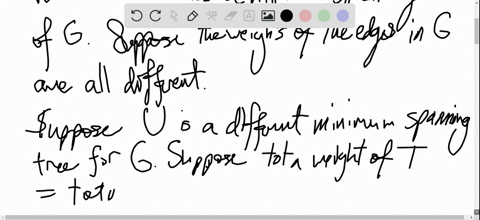 of G. Suppose the weighs of the edges in G
are all different.
Suppose U is a different minimum spanning
tree for G. Suppose tota weight of T
= tota